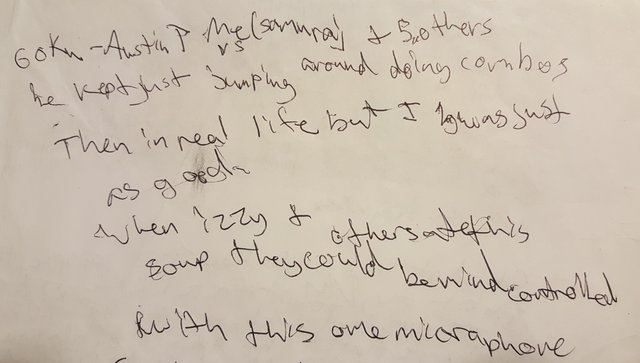 Goku - Austin P Me (samurai) & 5 others
vs
he kept just jumping around doing combos
Then in real life but I was just
as good
when izzy & others ate this
soup they could be mind controlled
with this one microphone